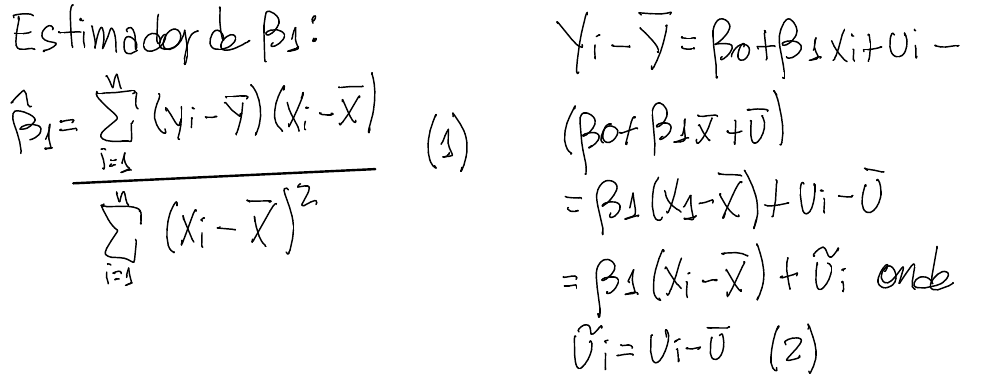 Estimador de β1:
β̂1 = ∑_{i=1}^{n} (yi - ȳ)(xi - x̄) / ∑_{i=1}^{n} (xi - x̄)² (1)
Yi - Ȳ = β0 + β1xi + Ui -
(β0 + β1x̄ + Ū)
= β1(x1 - x̄) + Ui - Ū
= β1(xi - x̄) + Ũi onde
Ũi = Ui - Ū (2)